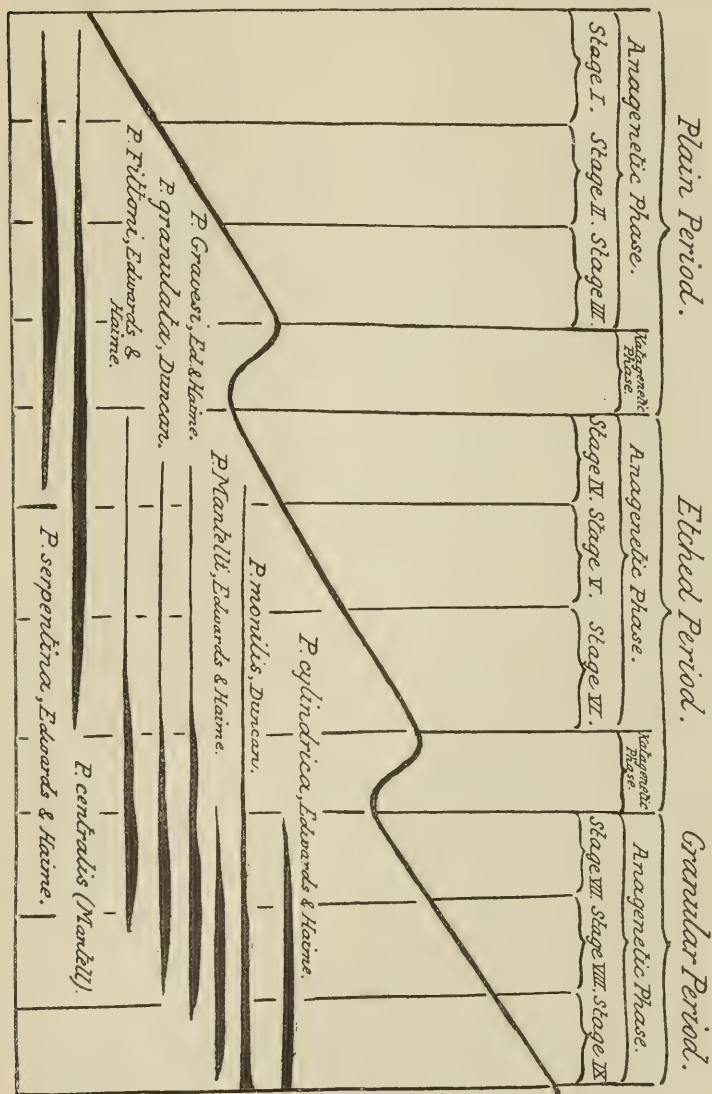 Plain Period.
Etched Period.
Granular Period.
Anagenetic Phase.
Katagenetic
Phase.
Anagenetic Phase.
Katagenetic
Phase.
Anagenetic Phase.
Stage I. Stage II. Stage III.
Stage IV. Stage V. Stage VI.
Stage VII. Stage VIII. Stage IX
P. cylindrica, Edwards & Haime.
P. monilis, Duncan.
P. Mantelli, Edwards & Haime.
P. Gravesi, Ed. & Haime.
P. granulata, Duncan.
P. Fittoni, Edwards &
Haime.
P. centralis (Mantell).
P. serpentina, Edwards & Haime.